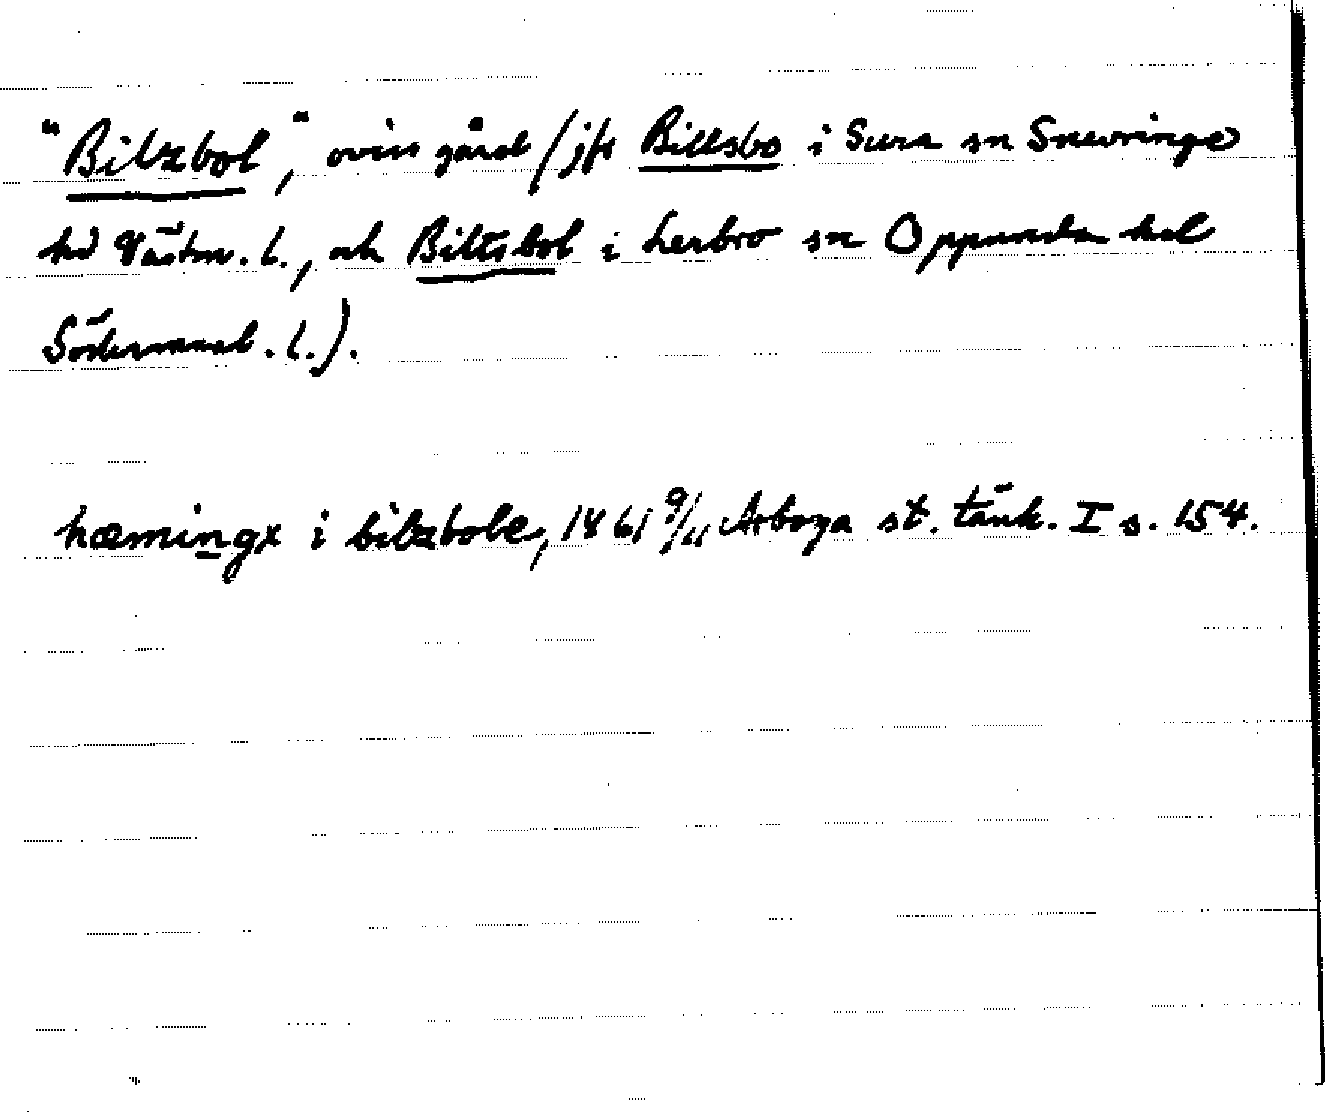 "Bilzbol", oviss gård (jfr Billsbo i Sura sn Snevringe
hd Västm. l., och Biltsbol i Lerbro sn Oppunda hd
Södermanl. l.).
hæmingx i bilzbole, 1461 9/11 Arboga st. tänk. I s. 154.